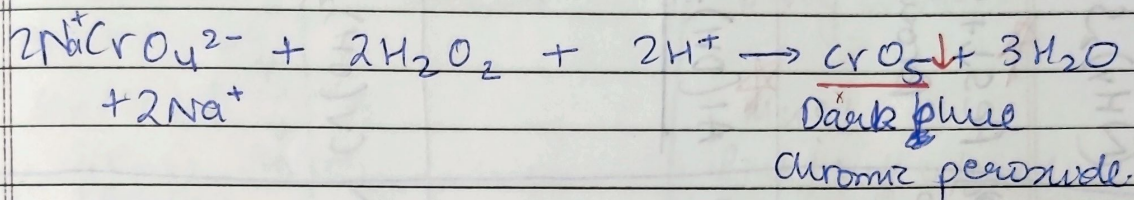 2Na⁺CrO₄²⁻ + 2H₂O₂ + 2H⁺ → CrO₅↓ + 3H₂O
+2Na⁺
Dark blue
Chromic peroxide.